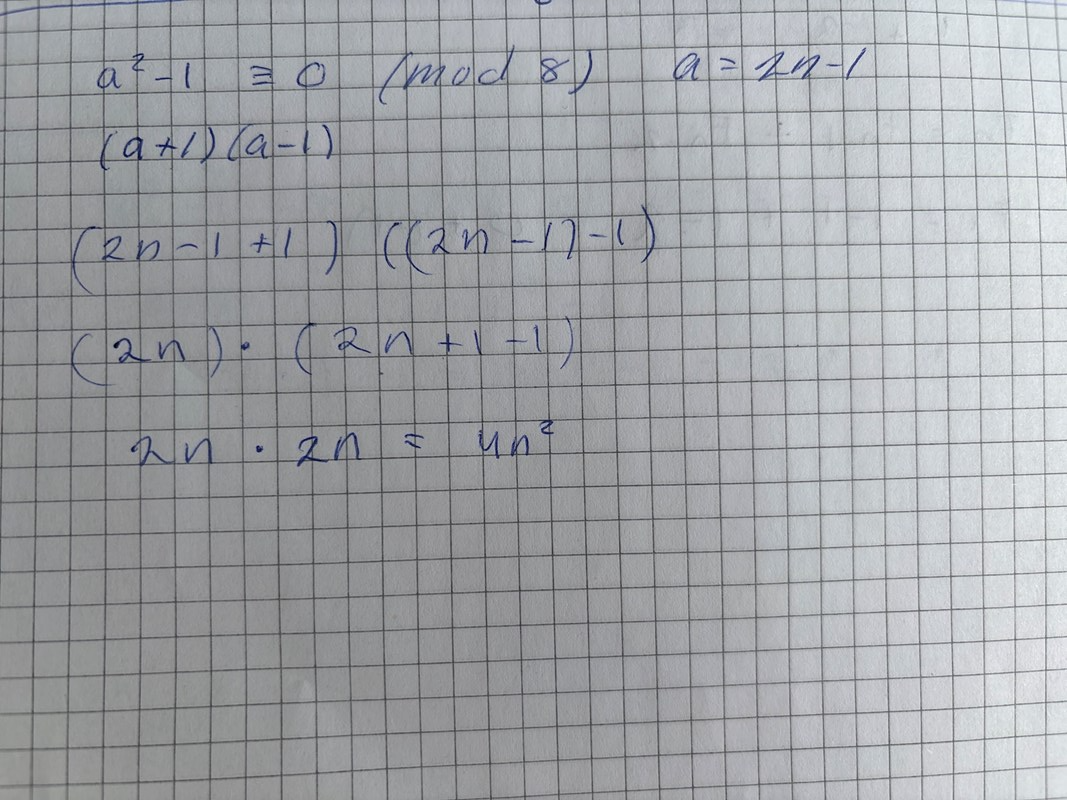 a² - 1 ≡ 0 (mod 8) a = 2n - 1
(a + 1) (a - 1)
(2n - 1 + 1) ((2n - 1) - 1)
(2n) · (2n + 1 - 1)
2n · 2n = 4n²